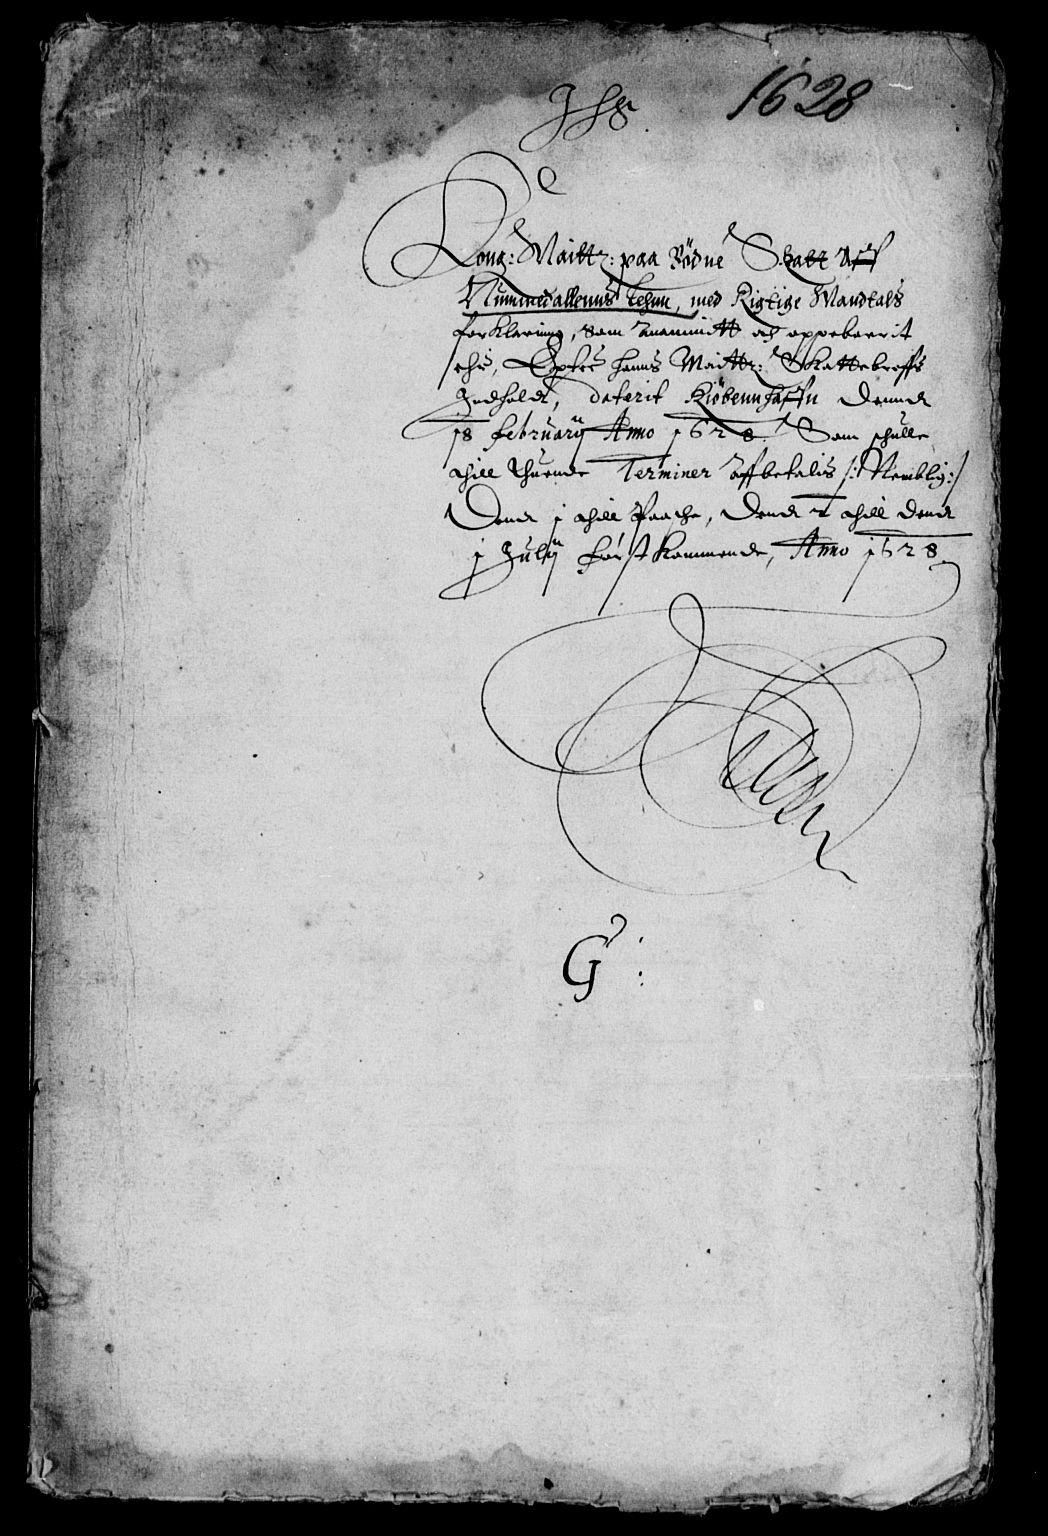 1628
Jhs
Kong: Maitt: paa Bödne Skatt Aff
Nummedallenns Lehnn, med Rigtige Mandtals
forklaring, som Anammitt och oppebaerit
ehr, Epter hanns Maitt: Skattebreffs
Indhold, daterit Kiöbennhaffn Dennd
18 februarij Anno 1628. Som schulle
thill thuende Terminer Affbetalis /: Nemblig :/
Dend 1 thill Paasche, Dend 2 thill dend
1 Julij först Kommende, Anno 1628
G: